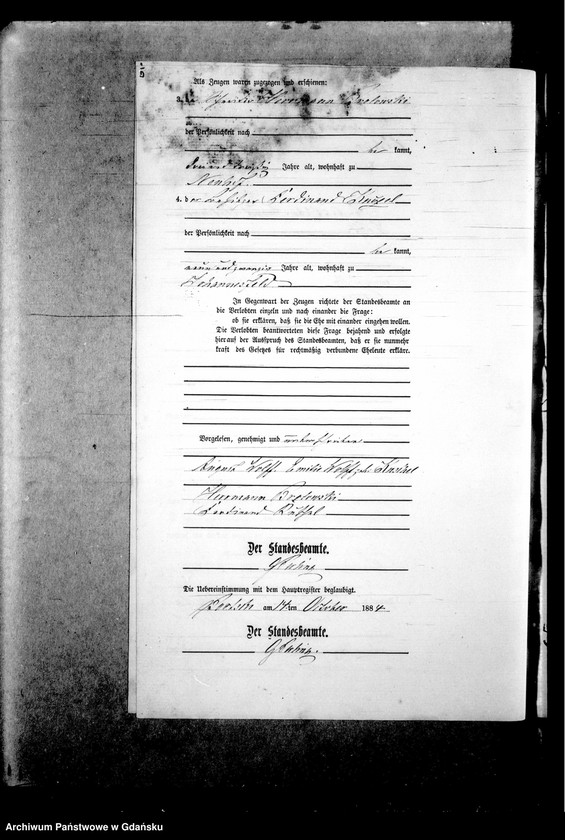 Als Zeugen waren zugezogen und erschienen:
3. der Hermann Brotowski
der Persönlichkeit nach
be kannt,
drei und dreißig Jahre alt, wohnhaft zu
4. der Besitzer Ferdinand
der Persönlichkeit nach
be kannt,
neun und zwanzig Jahre alt, wohnhaft zu
Johannesfeld
In Gegenwart der Zeugen richtete der Standesbeamte an
die Verlobten einzeln und nach einander die Frage:
ob sie erklären, daß sie die Ehe mit einander eingehen wollen.
Die Verlobten beantworteten diese Frage bejahend und erfolgte
hierauf der Ausspruch des Standesbeamten, daß er sie nunmehr
kraft des Gesetzes für rechtmäßig verbundene Eheleute erkläre.
Vorgelesen, genehmigt und unterschrieben
August Wolff Emilie Wolff geb.
Hermann Brotowski
Ferdinand
Der Standesbeamte.
Die Uebereinstimmung mit dem Hauptregister beglaubigt.
am 14 ten October 1884
Der Standesbeamte.
Archiwum Państwowe w Gdańsku